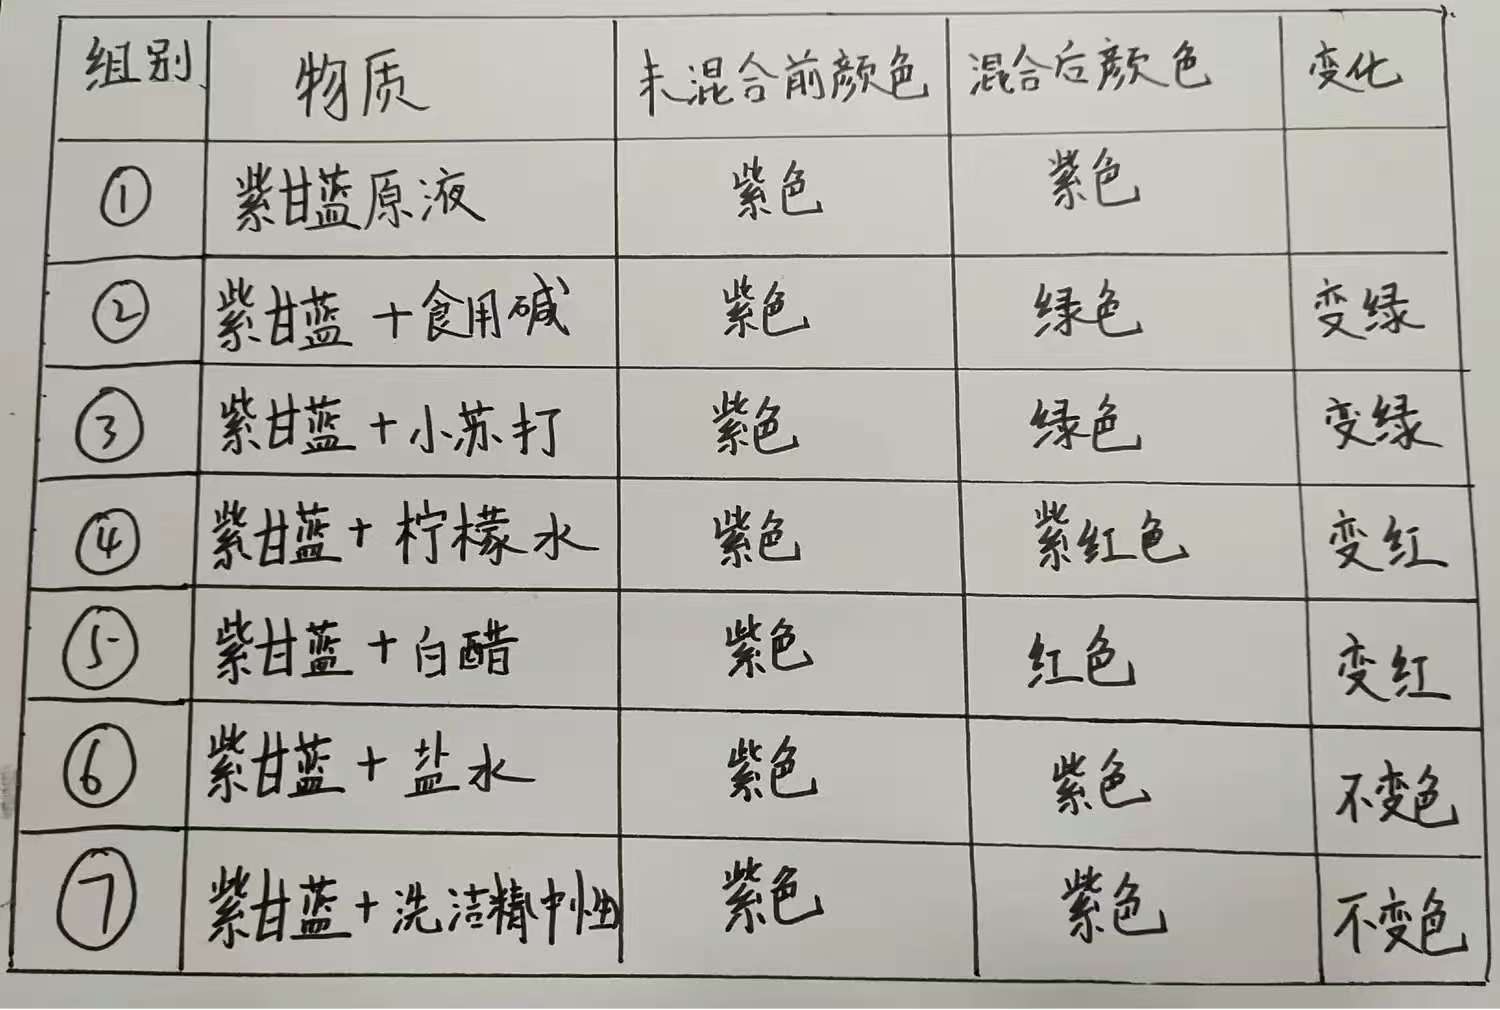 组别 物质 未混合前颜色 混合后颜色 变化
① 紫甘蓝原液 紫色 紫色
② 紫甘蓝+食用碱 紫色 绿色 变绿
③ 紫甘蓝+小苏打 紫色 绿色 变绿
④ 紫甘蓝+柠檬水 紫色 紫红色 变红
⑤ 紫甘蓝+白醋 紫色 红色 变红
⑥ 紫甘蓝+盐水 紫色 紫色 不变色
⑦ 紫甘蓝+洗洁精(中性) 紫色 紫色 不变色